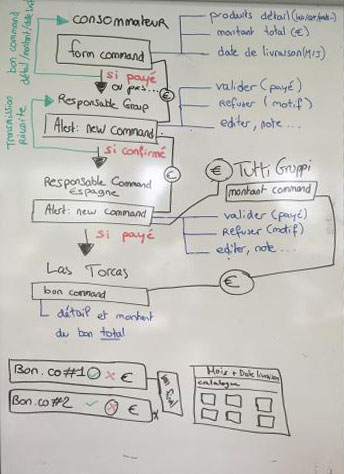 consommateur
form command
produits détail
montant total (€)
date de livraison (M/J)
bon command
détail/montant/date
si payé
ou pas...
€
Transmission
Réussite
Responsable Group
Alert: new command
valider (payé)
Refuser (motif)
editer, note...
si confirmé
€
Responsable Command
Espagne
Alert: new command
€
Tutti Gruppi
montant command
valider (payé)
Refuser (motif)
editer, note...
si payé
€
Las Torcas
bon command
détail et montant
du bon total
Bon.co#1 ✓ × €
Bon.co#2 ✓ × €
Mois + Date livraison
catalogue